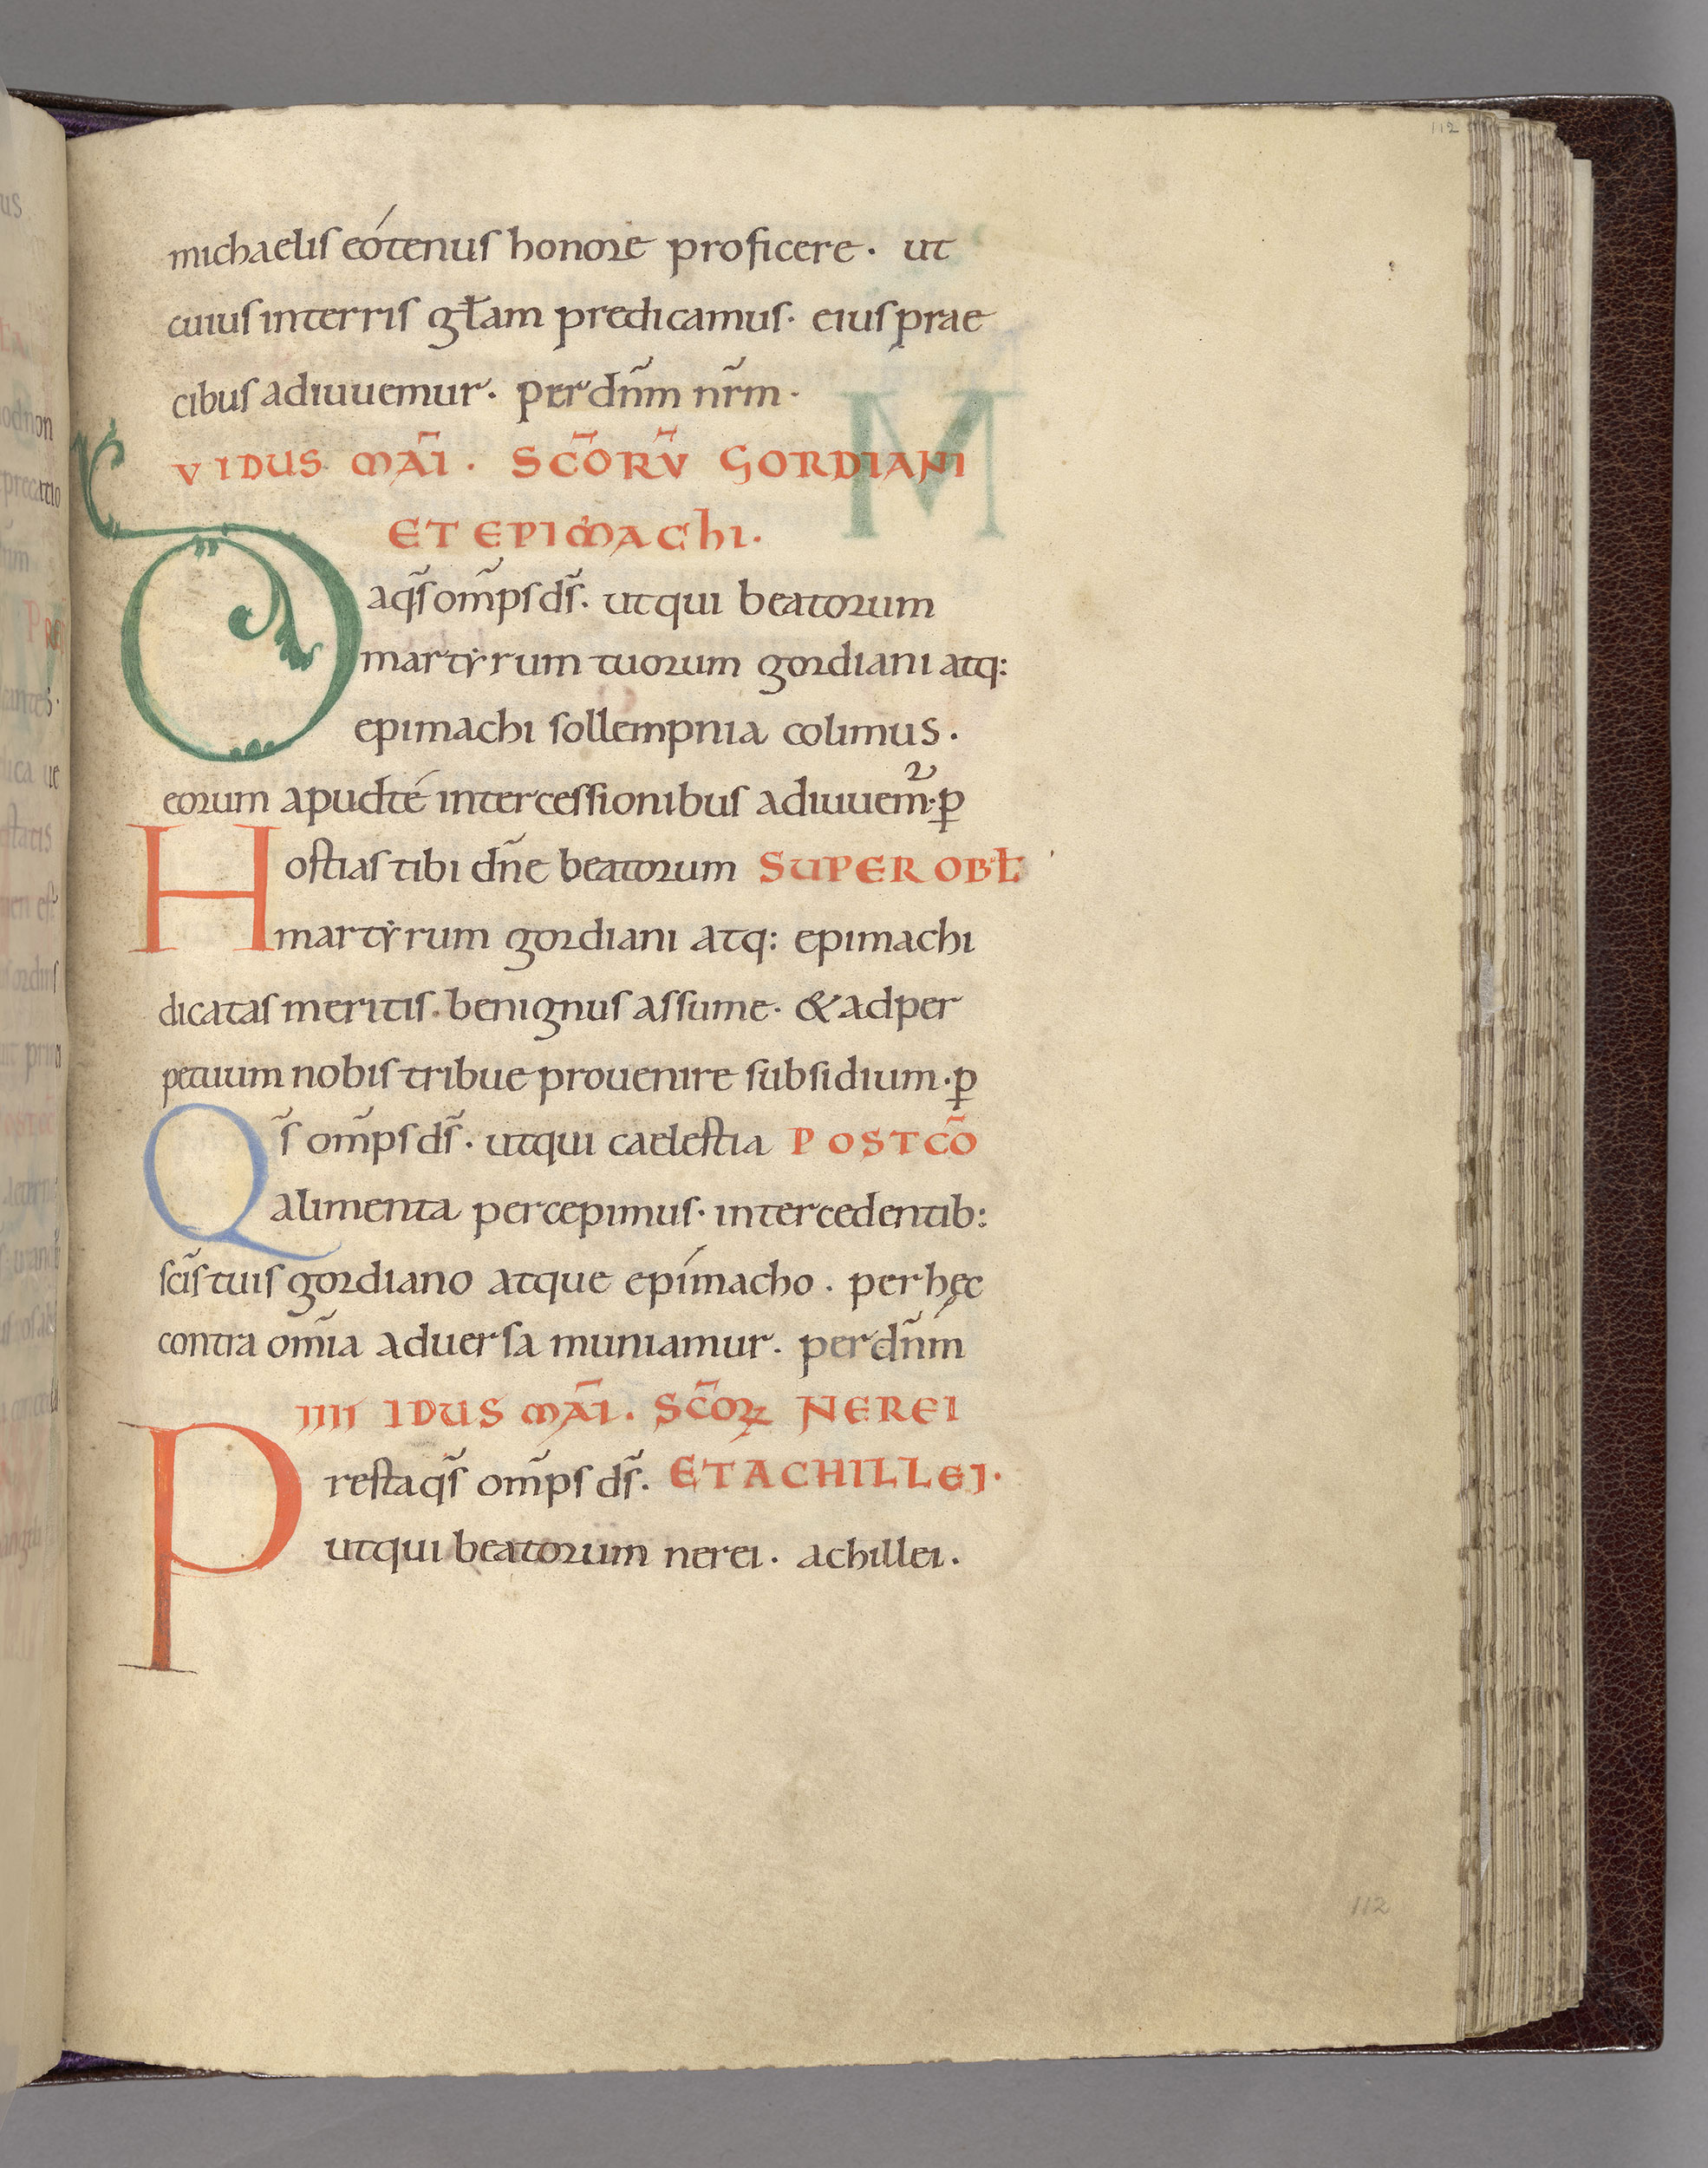 112
michaelis eótenus honore proficere. ut
cuius interris głam predicamus. eius prae
cibus adiuuemur. per dñm nr̃m.
V IDUS MAĪ. SC̄ORV̄ GORDIANI
ET EPIMACHI.
Da qs̃ om̃ps ds̃. ut qui beatorum
martẏrum tuorum gordiani atq:
epimachi sollempnia colimus.
eorum apud té intercessionibus adiuuem̃. ꝑ
Hostias tibi dñe beatorum SUPER OBŁ
martẏrum gordiani atq: epimachi
dicatas meritis. benignus assume. & ad per
petuum nobis tribue prouenire subsidium. ꝑ
Qs̃ om̃ps ds̃. ut qui caelestia POSTCŌ
alimenta percepimus. intercedentib:
scĩs tuis gordiano atque epímacho. per hęc
contra om̃ia aduersa muniamur. per dñm
IIII IDUS MAĪ. SC̄OꝜ NEREI
Presta qs̃ om̃ps ds̃. ET ACHILLEI.
ut qui beatorum nerei. achillei.
112